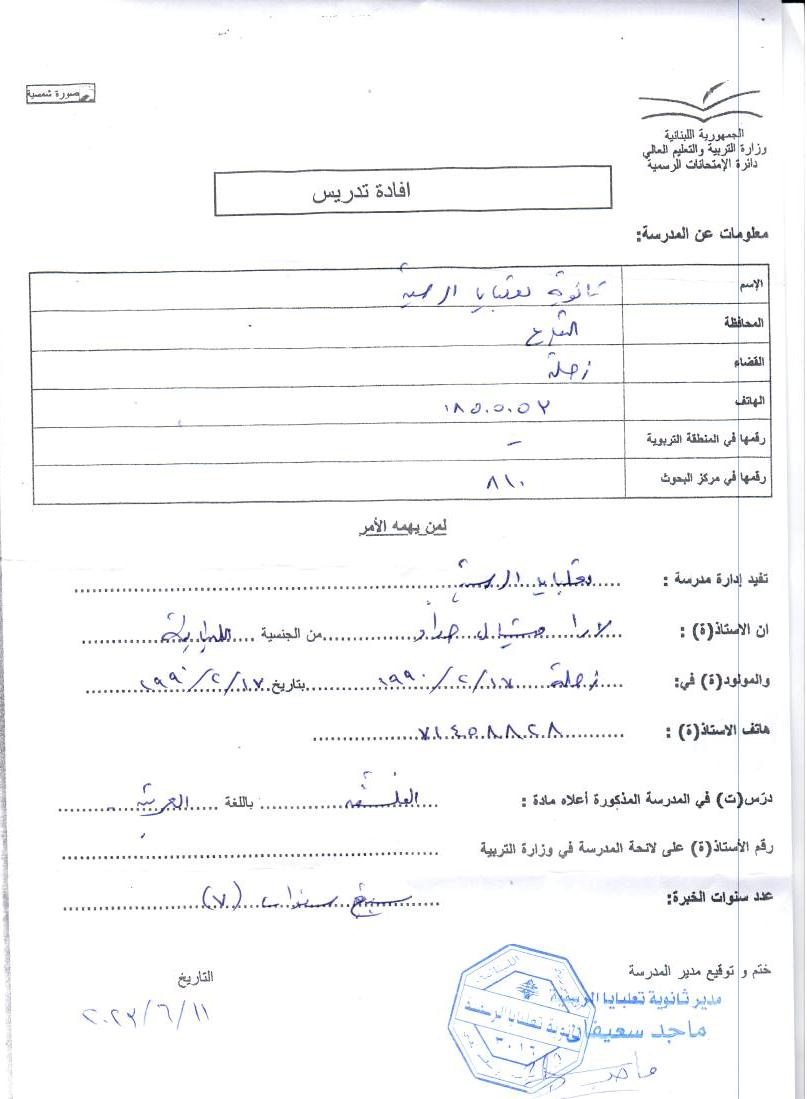 صورة شمسية
الجمهورية اللبنانية
وزارة التربية والتعليم العالي
دائرة الإمتحانات الرسمية
افادة تدريس
معلومات عن المدرسة:
الإسم ثانوية تعلبايا الرسمية
المحافظة البقاع
القضاء زحلة
الهاتف ٠٨٥٠٥٠٥٢
رقمها في المنطقة التربوية –
رقمها في مركز البحوث ٨١٠
لمن يهمه الأمر
تفيد إدارة مدرسة : تعلبايا الرسمية
ان الاستاذ(ة) : لارا ميشال حداد من الجنسية اللبنانية
والمولود(ة) في: زحلة ١٩٩٠/٢/١٧ بتاريخ ١٩٩٠/٢/١٧
هاتف الاستاذ(ة) :
درّس(ت) في المدرسة المذكورة أعلاه مادة : الفلسفة باللغة العربية
رقم الأستاذ(ة) على لائحة المدرسة في وزارة التربية
عدد سنوات الخبرة: سبع سنوات (٧)
ختم و توقيع مدير المدرسة
التاريخ
مدير ثانوية تعلبايا الرسمية
ماجد سعيفان
ثانوية تعلبايا الرسمية
٢٠٢٣/٦/١١